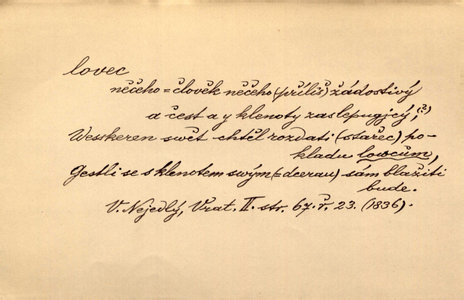 lovec
něčeho = člověk něčeho (příliš) žádostivý
a čest a y klenoty zaslepugjcý, (?)
Wesskeren swět chtěl rozdati (stařec) po-
kladu lowcům,
Gestli se s klenotem swým (= dcerau) sám blažiti
bude.
V. Nejedlý, Vrat. II. str. 67. ř. 23. (1836).